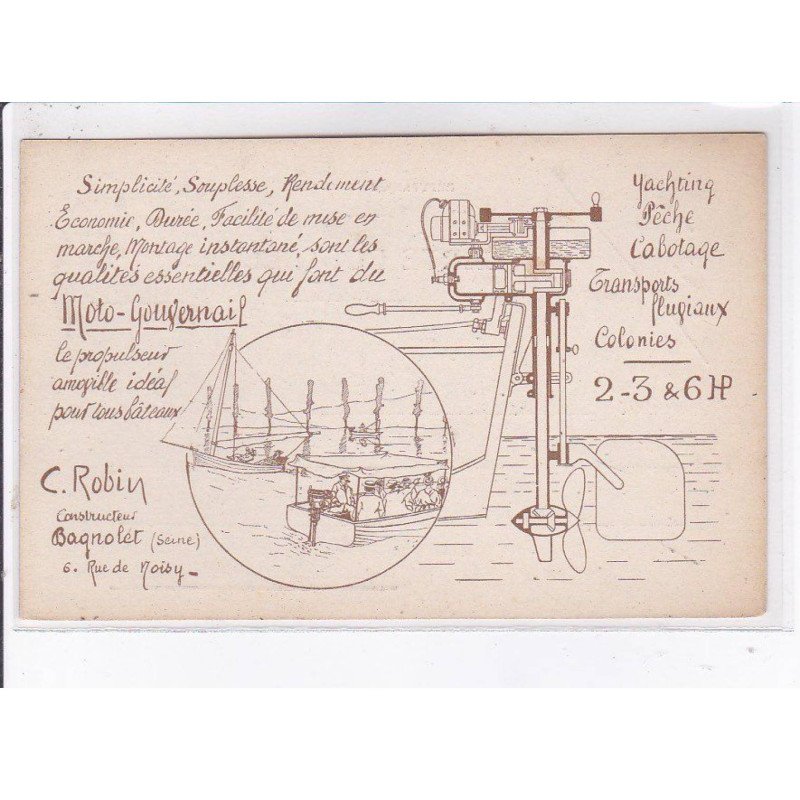 Simplicité, Souplesse, Rendement
Économie, Durée, Facilité de mise en
marche, Montage instantané, sont les
qualités essentielles qui font du
Moto-Gouvernail
le propulseur
amovible idéal
pour tous bâteaux
C. Robin
Constructeur
Bagnolet (Seine)
6. Rue de Noisy_
Yachting
Pêche
Cabotage
Transports
fluviaux
Colonies
2-3 & 6 HP